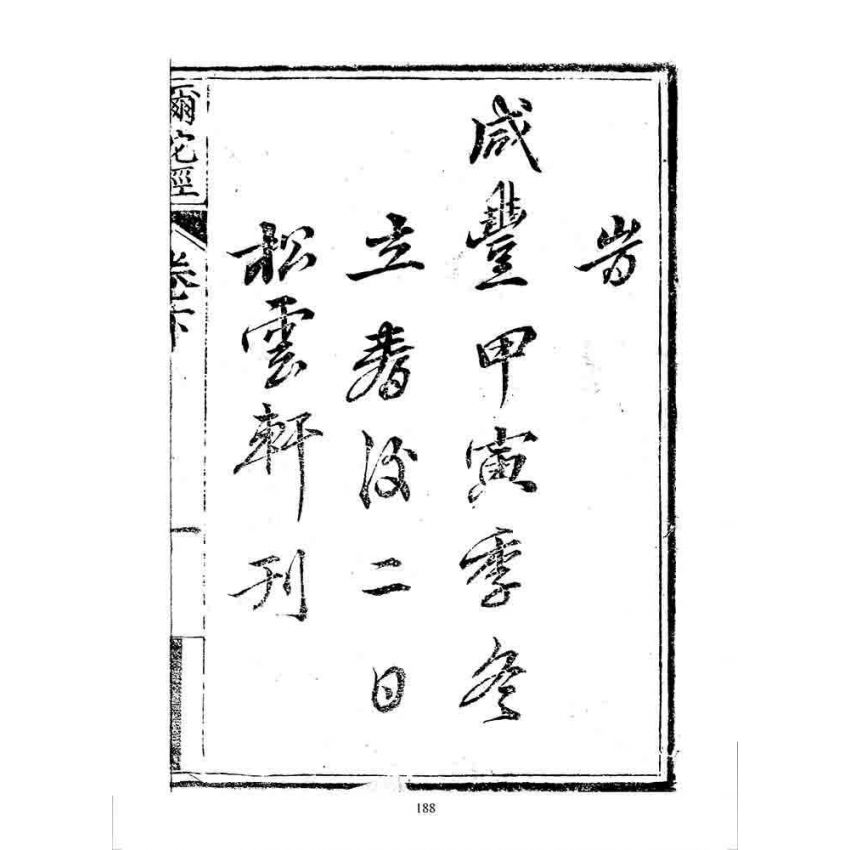 旹
咸豐甲寅季冬
立春後二日
松雲軒刊
彌陀經
卷下
188